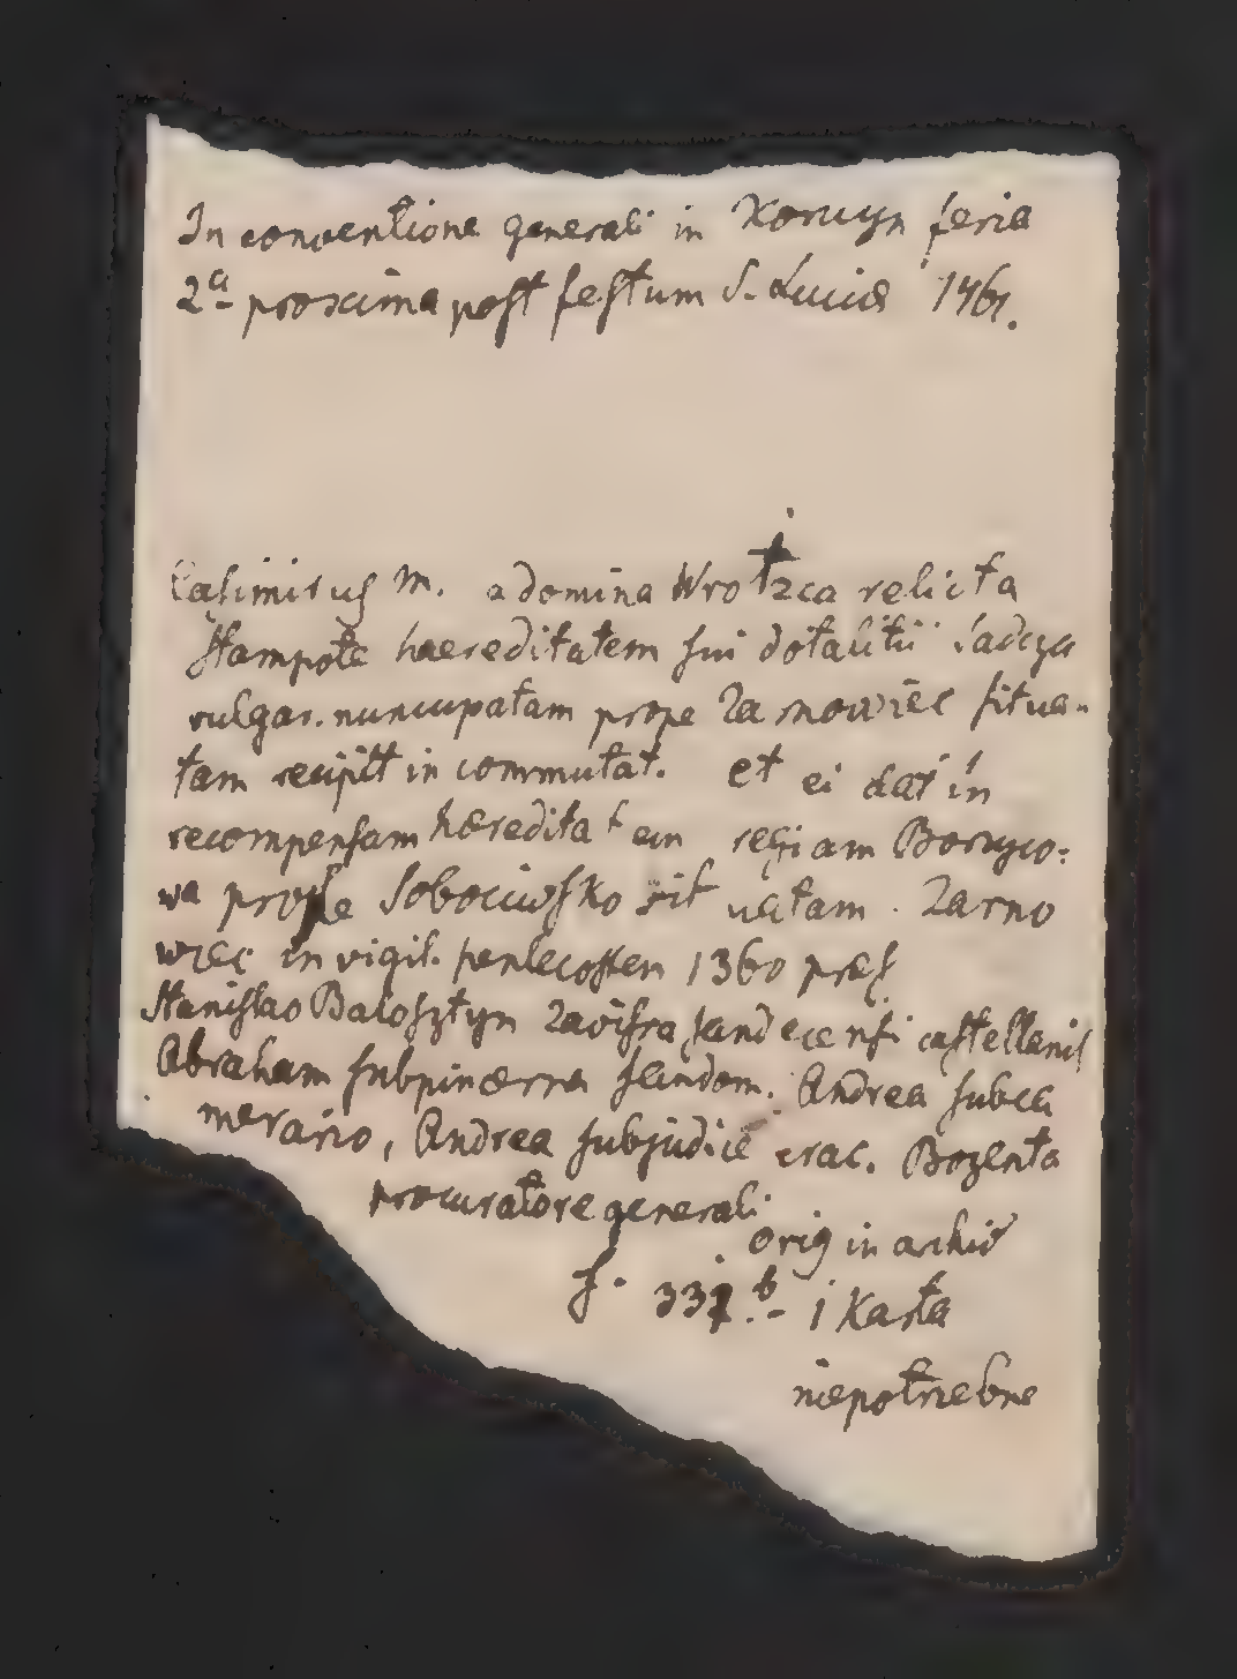 In conventione generali in Korczyn feria
2a proxima post festum S. Luciae 1461.
Casimirus M. a domina Wrotzca relicta
Stampote haereditatem sui dotalitii
vulgar. nuncupatam prope Zarnowiec situa-
tam recipit in commutat. et ei dat in
recompensam haereditatem regiam Borzyco:
wa prope situatam. Zarno
wiec in vigil. pentecosten 1360 praes.
Stanislao Zavissa Sandecensi castellanis
Abraham subpincerna Sandom. Andrea subca
merario, Andrea subjudice crac. Bozenta
procuratore generali
orig in archiv
f. 337.b - 1 Karta
niepotrzebne